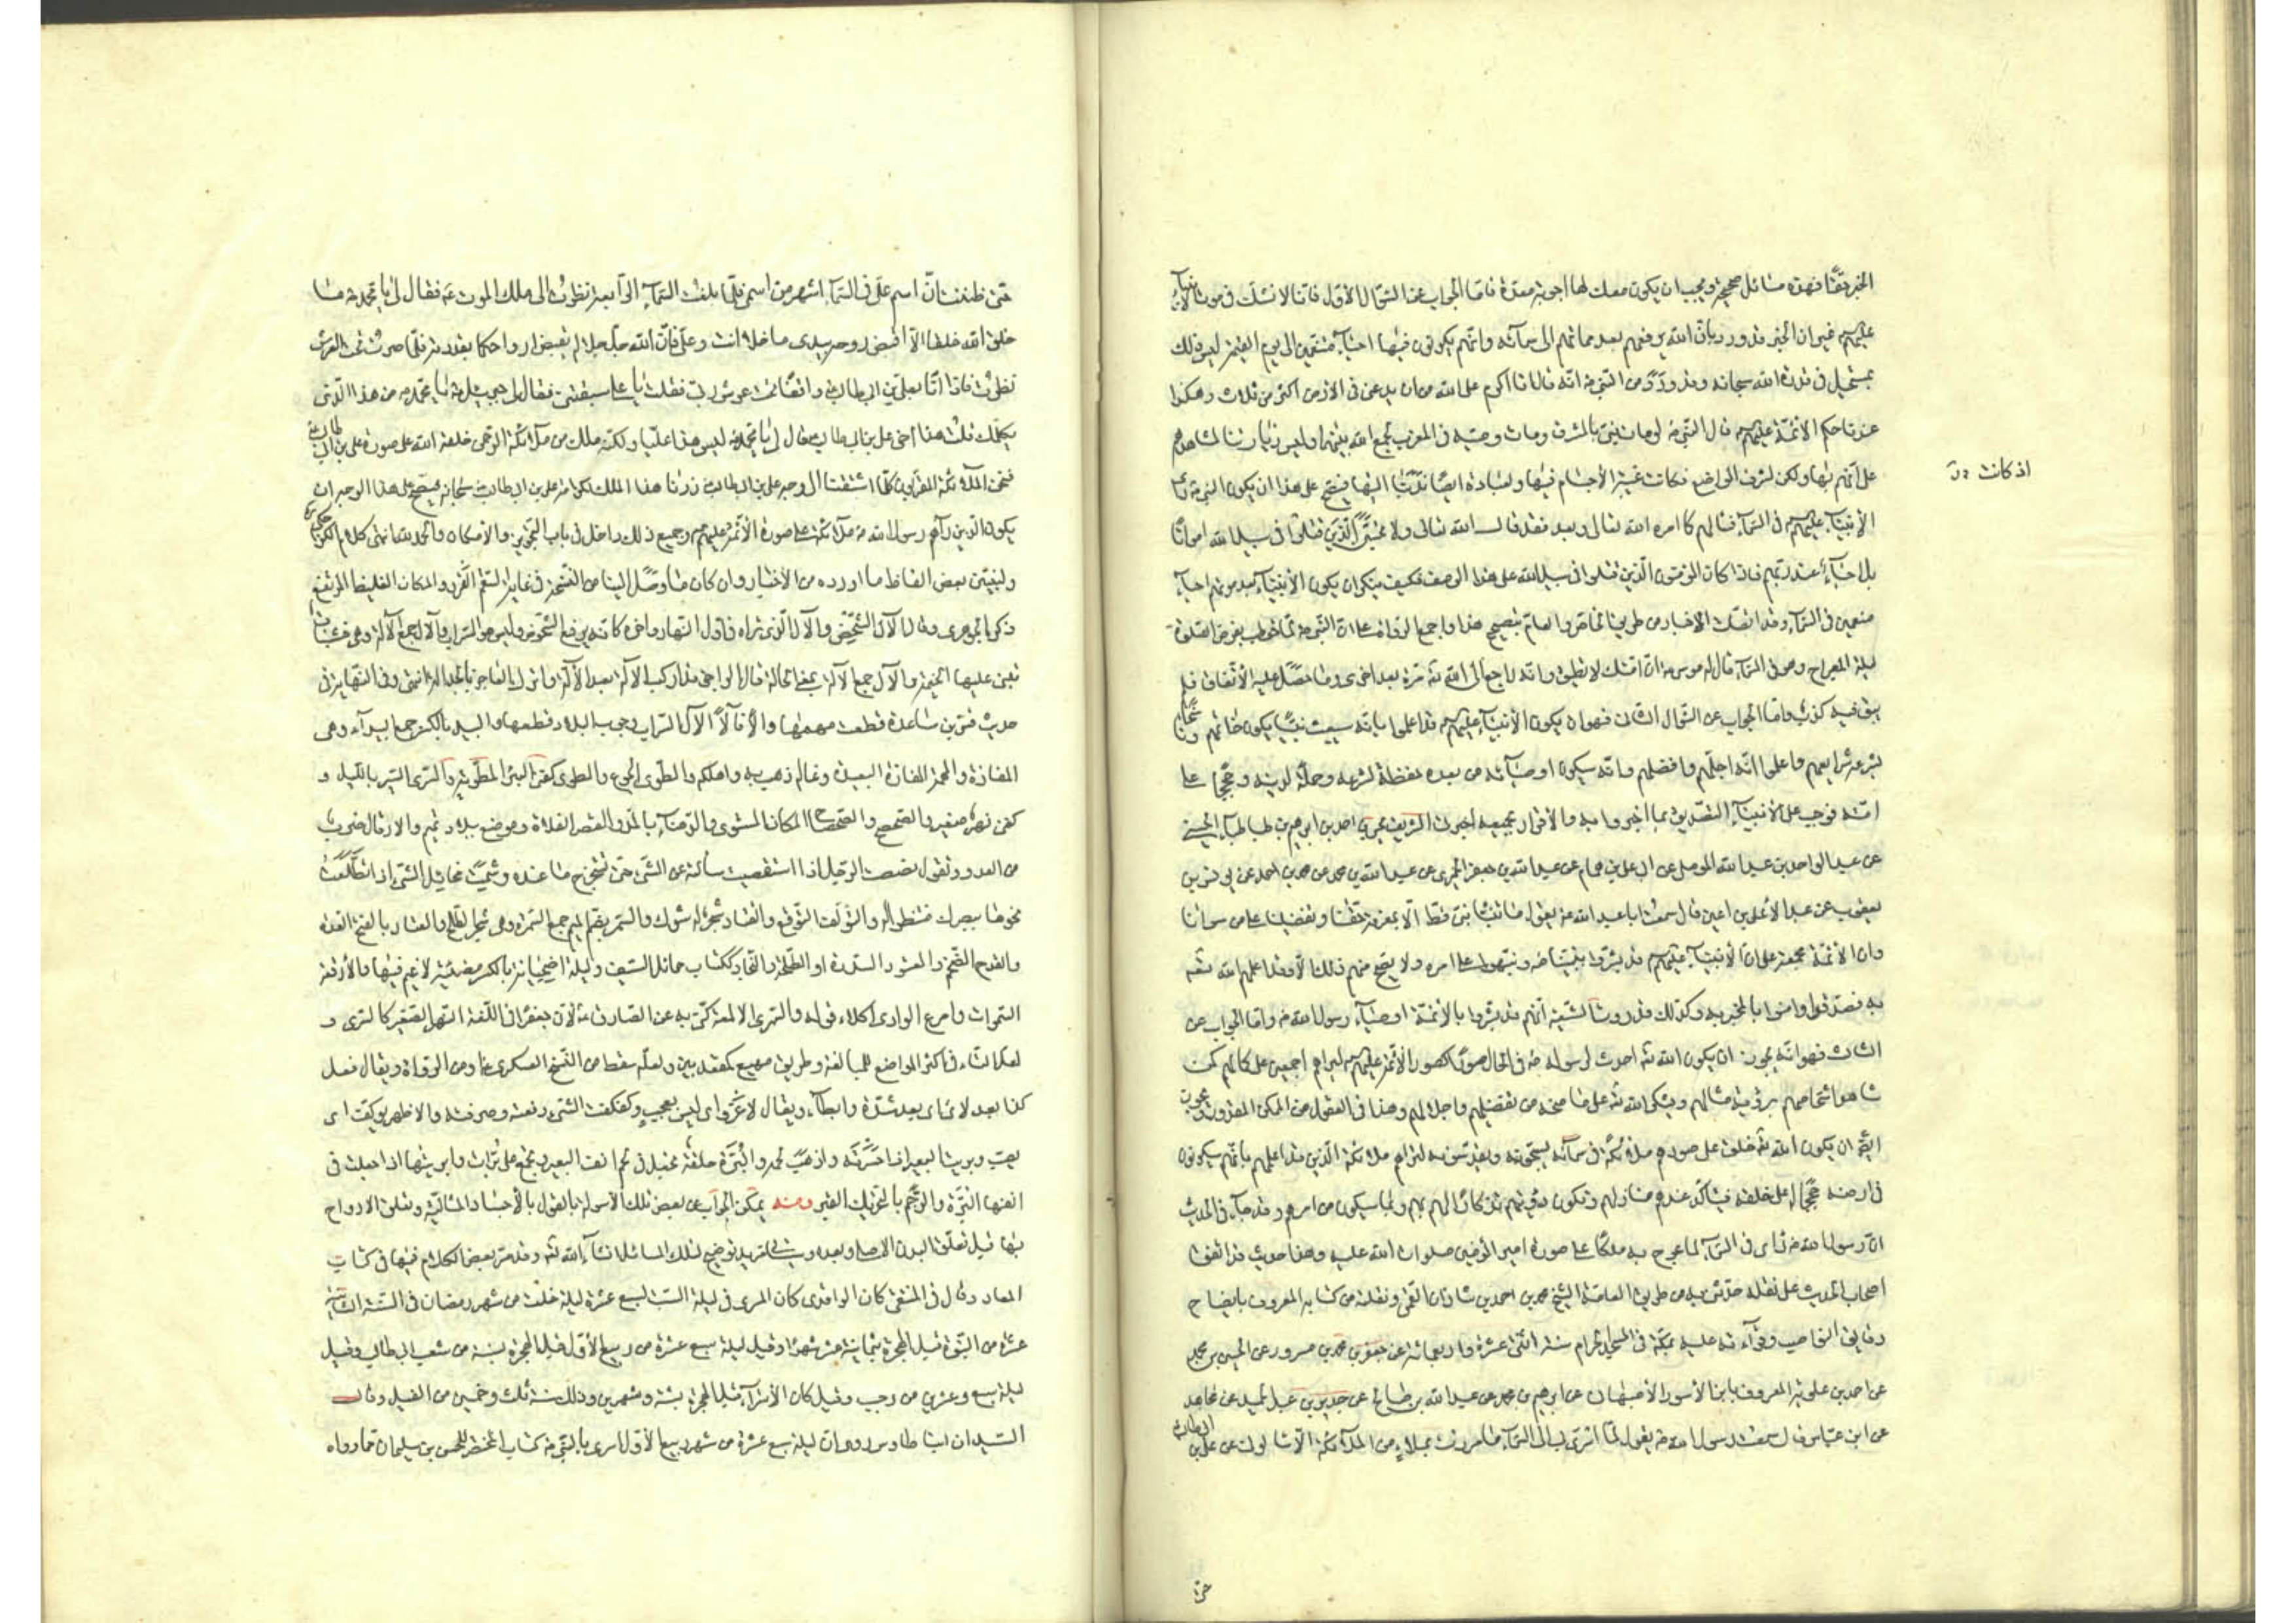 الخبر حقّا فهذه مسائل صحيحة ويجب ان يكون معك لها اجوبة معدّة فامّا الجواب عن السّؤال الأوّل فانّا لا نشكّ في موت الأنبياء
عليهم غير ان الخبر قد ورد بانّ الله يرفعهم بعد مماتهم الى سمائه وانّهم يكونون فيها احياء متنعّمين الى يوم القيمة ليس ذلك
بمستحيل في قدرة الله سبحانه وقد ورد عن النّبي ص انّه قال انا اكرم على الله من ان يدعني في الارض اكثر من ثلاث وهكذا
عندنا حكم الأئمّة عليهم قال النّبي ص لو مات نبيّ بالمشرق ومات وصيّه في المغرب لجمع الله بينهما وليس زيارتنا لمشاهدهم
على انّهم بها ولكن لشرف المواضع فكانت غيبة الأجسام فيها ولعبادة ايضا ندبنا اليها فيصحّ على هذا ان يكون النبي ص راى
اذ كانت
الأنبياء عليهم في السّماء فسألهم كما امره الله تعالى وبعد فقد قال الله تعالى ولا تحسبنّ الّذين قتلوا في سبيل الله امواتا
بل احياء عند ربّهم فاذا كان المؤمنون الّذين قتلوا في سبيل الله على هذا الوصف فكيف ينكر ان يكون الأنبياء بعد موتهم احياء
منعمين في السّماء وقد اتّصلت الاخبار من طريق الخاصّ والعامّ بتصحيح هذا واجمع الرواة على انّ النّبي ص لمّا خوطب بفرض الصّلوة
ليلة المعراج وهو في السّماء قال له موسى ع انّ امّتك لا تطيق وانّه راجع الى الله ته مرّة بعد اخرى وما حصل عليه الأتفاق فلم
يبق فيه كذب وامّا الجواب عن السّؤال الثّاني فهو ان يكون الأنبياء عليهم قد اعلموا بانّه سيبعث نبيّا يكون خاتمهم وناسخا
بشرعه شرايعهم واعلموا انّه اجلّهم وافضلهم وانّه سيكون اوصيائه من بعده حفظة لشرعه وحملة لدينه وحججا على
امّته فوجب على الأنبياء التّصديق بما اخبروا به والأقرار بجميعه اخبرني الشّريف يحيى بن احمد بن ابرهيم بن طباطباء الحسني
عن عبد الواحد بن عبد الله الموصلي عن ابي علي بن همام عن عبد الله بن جعفر الحميري عن عبد الله بن محمد عن محمد بن احمد عن يونس بن
يعقوب عن عبد الأعلى بن اعين قال سمعت ابا عبد الله ع يقول ما تنبّأ نبيّ قطّ الّا بمعرفة حقّنا وتفضيلنا على من سوانا
وان الأمّة مجمعة على انّ الأنبياء عليهم قد بشّروا بنبيّنا ص ونبّهوا على امره ولا يصحّ منهم ذلك الّا وقد اعلمهم الله ته
به فصدّقوا وامنوا بالمخبر به وكذلك قد روت الشّيعة انّهم قد بشّروا بالأئمّة اوصياء رسول الله ص وامّا الجواب عن
الثالث فهو انّه يجوز ان يكون الله ته احدث لرسوله ص في الحال صورا كصور الأئمّة عليهم ليراهم اجمعين على كمالهم كمن
شاهد اشخاصهم برؤية مثالهم ويشكر الله ته على ما منحه من تفضيلهم واجلالهم وهذا في العقول من الممكن المقدور ويجوز
ايضا ان يكون الله ته خلق على صورهم ملائكة في سمائه يسبّحونه ويقدّسونه لتراهم ملائكته الّذين قد اعلمهم بانّهم سيكونون
في ارضه حججا له على خلقه فيتاكّد عندهم منازلهم وتكون رؤيتهم تذكارا لهم بهم وبما سيكون من امرهم وقد جاء في الحديث
انّ رسول الله ص راى في السّماء لمّا عرج به ملكا على صورة امير المؤمنين صلوات الله عليه وهذا حديث قد اتّفق
اصحاب الحديث على نقله حدّثني به من طريق العامّة الشّيخ محمد بن احمد بن شاذان القمّي ونقلته من كتابه المعروف بايضاح
دفائن النّواصب وقرأته عليه بمكّة في المسجد الحرام سنة اثنتى عشرة واربعمائة عن جعفر بن محمد بن مسرور عن الحسين بن محمد
عن احمد بن علويّه المعروف بابن الأسود الأصبهاني عن ابرهيم بن محمد عن عبد الله بن صالح عن جرير بن عبد الحميد عن مجاهد
عن ابن عبّاس قال سمعت رسول الله ص يقول لمّا اسري بي الى السّماء ما مررت بملاء من الملائكة الّا سألوني عن علي بن ابي طالب
حتّى
حتّى ظننت انّ اسم علي في السّماء اشهر من اسمي فلمّا بلغت السّماء الرّابعة نظرت الى ملك الموت ع فقال لي يا محمد ص ما
خلق الله خلقا الّا اقبض روحه بيدي ما خلا انت وعلي فانّ الله جلّ جلاله يقبض ارواحكما بقدرته فلمّا صرت تحت العرش
نظرت فاذا انا بعلي بن ابي طالب واقفا تحت عرش ربّي فقلت يا علي سبقتني فقال لي جبرئيل ع يا محمد ص من هذا الّذي
يكلّمك قلت هذا اخي علي بن ابي طالب ع قال لي يا محمد ص ليس هذا عليّا ولكنّه ملك من ملائكة الرّحمن خلقه الله على صورة علي بن ابي طالب
فنحن الملائكة المقرّبون كلّما اشتقنا الى وجه علي بن ابي طالب زرنا هذا الملك لكرامة علي بن ابي طالب على الله سبحانه فيصحّ على هذا الوجه ان
يكون الّذين رآهم رسول الله ص ملائكة على صورة الأئمّة عليهم وجميع ذلك داخل في باب التّجويز والأمكان والحمد لله انتهى كلام الكراجكي
ولنبيّن بعض الفاظ ما اورده من الأخبار وان كان ما وصل الينا من النّسخة في غاية السّقم القردد المكان الغليظ المرتفع
ذكره الجوهري وقال الآل الشّخص والآل الّذي تراه في اوّل النّهار واخره كانّه يرفع الشّخوص وليس هو السّراب والآل جمع الآلة وهي خشبات
تبنى عليها الخيمة والآلة جمع الآلة بمعنى الحالة قال الرّاجز قد اركب الآلة بعد الآلة واترك العاجز بالجدالة انتهى وفي النّهاية في
حديث قسّ بن ساعدة قطعت مهمها وآلا فآلا الآل السّراب وجبت البلاد قطعها والبيد بالكسر جمع البيداء وهي
المفازة والمهمه المفازة البعيدة وغاله ذهب به واهلكه والطّوى الجوع والطوى كغنى البئر المطويّة والسّرى السّير بالليل و
كغنى نهر صغير والصّحصح والصّحصاح المكان المستوي والدّهناء بالمدّ والقصر الفلاة وموضع ببلاد تميم والارقال ضرب
من العدو وتقول نصصت الرّجل اذا استقصيت مسألته عن الشّيء حتّى تستخرج ما عنده وشمت مخايل الشّيء اذا تطلّعت
نحوها ببصرك منتظرا له والتؤلف التوقّع والقتاد شجر له شوك والسّمر بضمّ الميم جمع السّمرة وهي شجر الطّلح والعتاد بالفتح العدّة
والقدح الضّخم والعتود السّدرة او الطّلحة والنّجاد ككتاب حمائل السّيف وليلة اضحيانة بالكسر مضيئة لا غيم فيها والأرقعة
السّموات وامرع الوادي اكلاء قوله والسّرى الالمعة كنّى به عن الصّادق ع لأنّ جعفرا في اللّغة النّهر الصّغير كالسّرى و
لعلّ التّاء في اكثر المواضع للمبالغة وطريق مهيع كمقعد بيّن ولعلّه سقط من النّسخ العسكري ع او من الرّواة ويقال فعل
كذا بعد لأى اى بعد شدّة وابطاء ويقال لا غرو اى ليس بعجب وكفكفت الشّيء دفعته وصرفته والاظهر يوكفت اى
يصبّ وبريت البعير اذا حسرته واذهبت لحمه والبرة حلقة تجعل في لحم انف البعير وتجمع على برات وابريتها اذا جعلت في
انفها البرّة والرّجم بالتّحريك القبر ومنه يمكن الجواب عن بعض تلك الأسولة بالقول بالأجساد المثاليّة وتعلّق الارواح
بها قبل تعلّق البدن الاصلي وبعده وسيأتي مزيد توضيح لتلك المسائل انشاء الله ته وقد مرّ بعض الكلام فيها في كتاب
المعاد وقال في المنتقى كان الواقدي كان المسرى في ليلة السّبت لسبع عشرة ليلة خلت من شهر رمضان في السّنة الثّانية
عشرة من النّبوّة قبل الهجرة بثمانية عشر شهرا وقيل ليلة سبع عشرة من ربيع الأوّل قبل الهجرة بسنة من شعب ابي طالب وقيل
ليلة سبع وعشرين من رجب وقيل كان الأسراء قبل الهجرة بسنة وشهرين وذلك سنة ثلث وخمسين من الفيل وقال
السّيد ابن طاوس روى انّ ليلة سبع عشرة من شهر ربيع الأوّل اسرى بالنّبي ص كتاب المختصر للحسن بن سليمان ممّا رواه